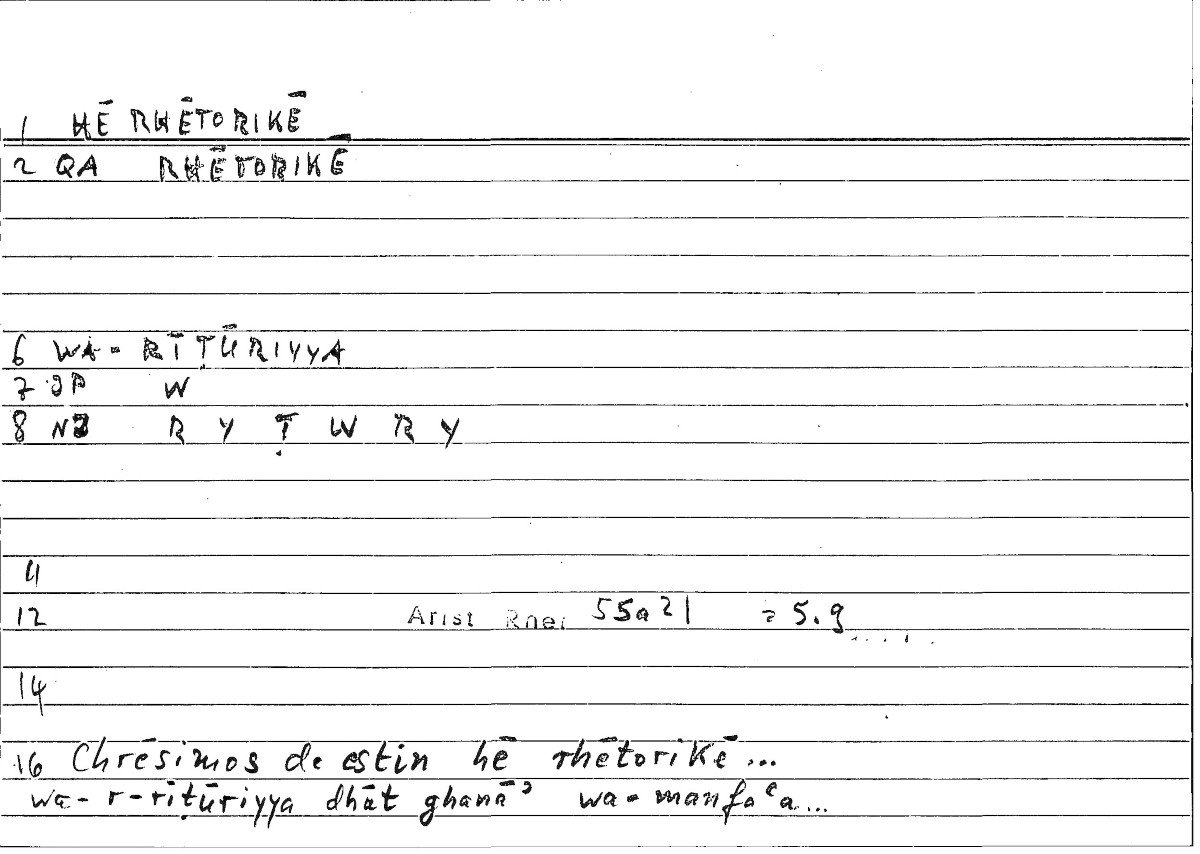 1 HĒ RHĒTORIKĒ
2 QA RHĒTORIKĒ
6 WA- RĪṬŪRIYYA
7 JP W
8 NB R Y Ṭ W R Y
11
12 Arist Rhet 55a21 = 5.9
14
16 Chrēsimos de estin hē rhētorikē...
wa-r-rīṭūriyya dhāt ghanāʾ wa-manfaʿa...